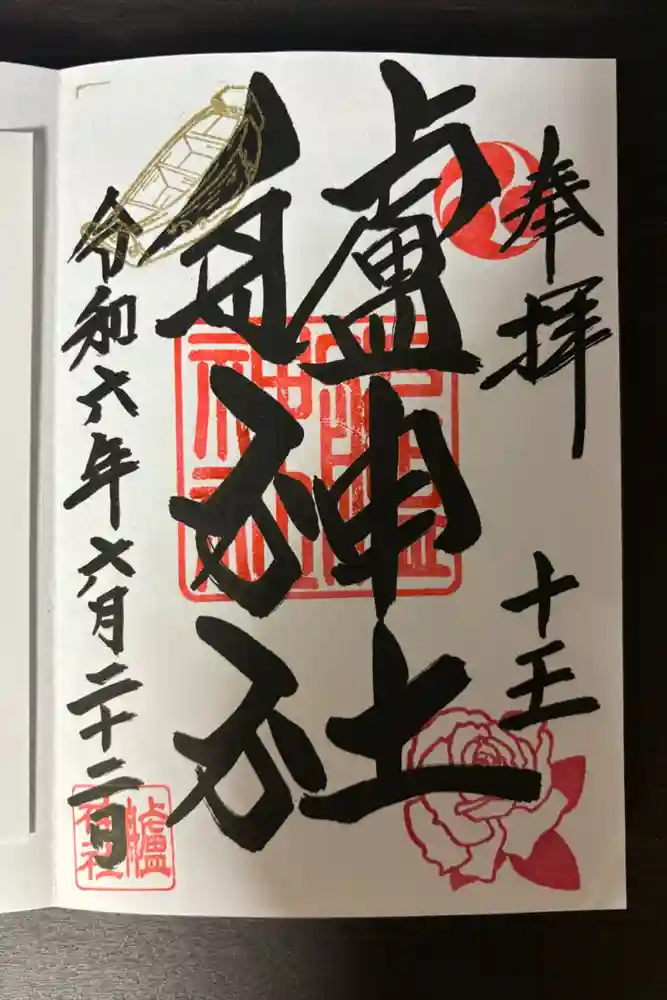 奉拝
十王
艫神社
令和六年六月二十二日
艫神社